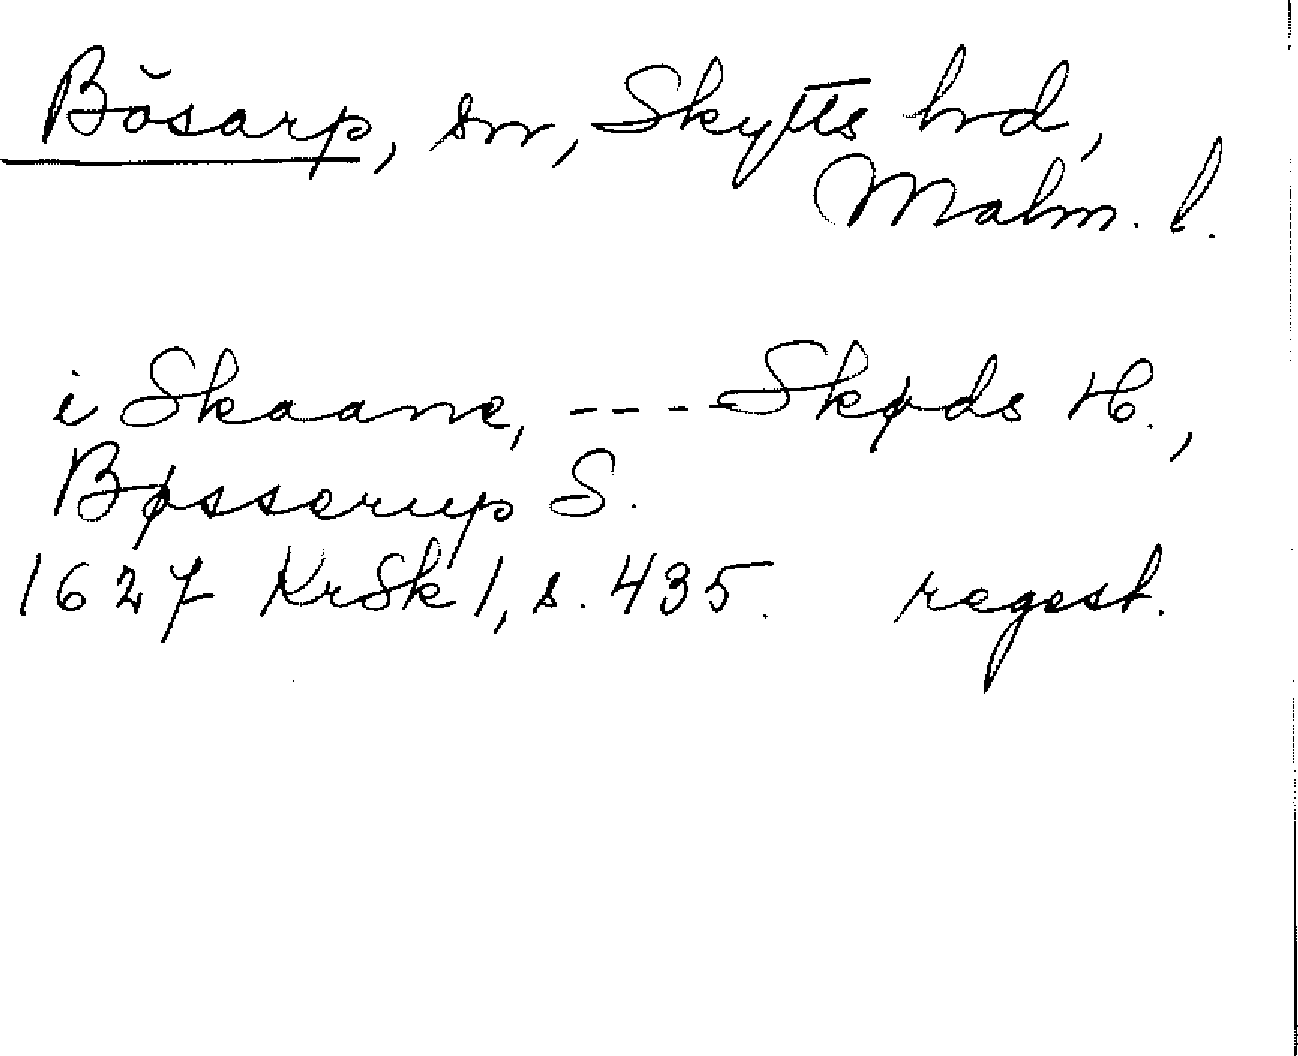 Bösarp, sn, Skytts hd,
Malm. l.
i Skaane, ---- Skøds H.,
Bøsserup S.
1627 KrSk 1, s. 435. regest.